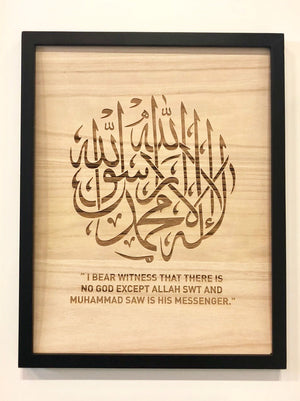 لا إله إلا الله محمد رسول الله
" I BEAR WITNESS THAT THERE IS
NO GOD EXCEPT ALLAH SWT AND
MUHAMMAD SAW IS HIS MESSENGER."